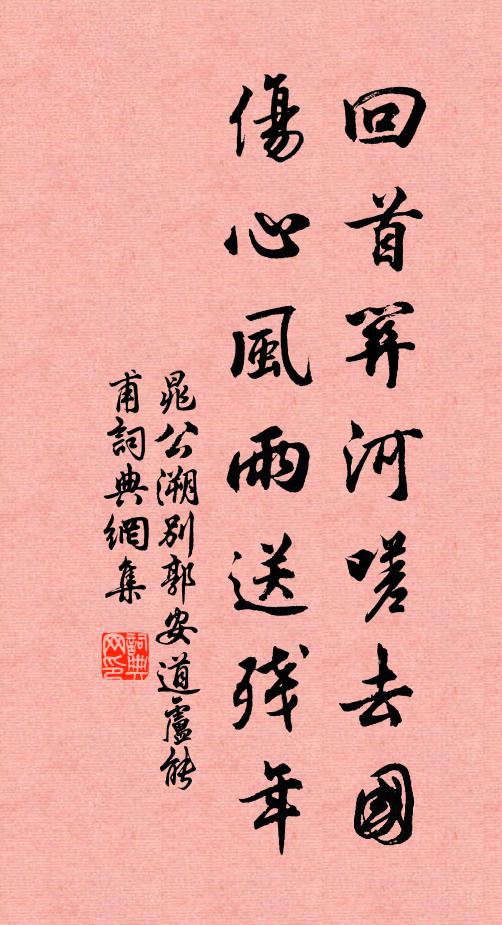 回首關河嗟去國
傷心風雨送殘年
晁公溯別郭安道盧能
甫詞典網集
詞典網印